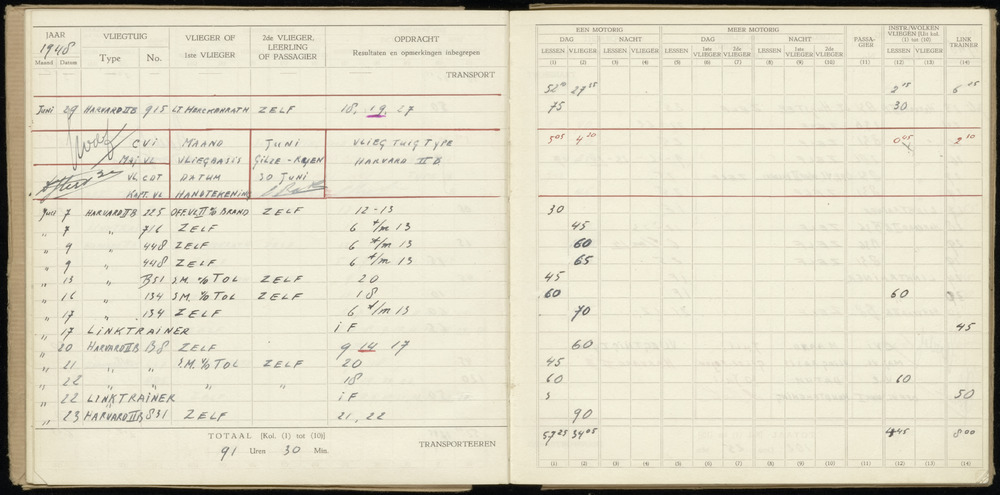 JAAR 1948 VLIEGTUIG VLIEGER OF 1ste VLIEGER 2de VLIEGER, LEERLING OF PASSAGIER OPDRACHT Resultaten en opmerkingen inbegrepen
Maand Datum Type No.
TRANSPORT
Juni 29 HARVARD II B 915 ZELF 18, 19, 27
CVI MAAND JUNI VLIEGTUIGTYPE
MAJ. VL VLIEGBASIS GILZE-RIJEN HARVARD II B
VL CDT DATUM 30 JUNI
KAPT. VL HANDTEKENING
Juli 7 HARVARD II B 225 OFF.VL II v/d BRAND ZELF 12-13
„ 7 „ 716 ZELF 6 t/m 13
„ 9 „ 448 ZELF 6 t/m 13
„ 9 „ 448 ZELF 6 t/m 13
„ 13 „ B51 S.M. v/d TOL ZELF 20
„ 16 „ 134 S.M. v/d TOL ZELF 18
„ 17 „ 134 ZELF 6 t/m 13
„ 17 LINKTRAINER IF
„ 20 HARVARD II B B8 ZELF 9 14 17
„ 21 „ „ S.M. v/d TOL ZELF 20
„ 22 „ „ „ „ 18
„ 22 LINKTRAINER IF
„ 23 HARVARD II B 831 ZELF 21, 22
TOTAAL [Kol. (1) tot (10)]
91 Uren 30 Min.
TRANSPORTEEREN
EEN MOTORIG MEER MOTORIG PASSA- GIER INSTR./WOLKEN VLIEGEN [Uit kol. (1) tot (10)] LINK TRAINER
DAG NACHT DAG NACHT
LESSEN VLIEGER LESSEN VLIEGER LESSEN 1ste VLIEGER 2de VLIEGER LESSEN 1ste VLIEGER 2de VLIEGER LESSEN VLIEGER
(1) (2) (3) (4) (5) (6) (7) (8) (9) (10) (11) (12) (13) (14)
75 30
5 05 4 20 0 45 2 10
30
45
60
65
45
60 60
70
45
60
45
60 60
50
90
57 25 34 05 4 45 8 00
(1) (2) (3) (4) (5) (6) (7) (8) (9) (10) (11) (12) (13) (14)